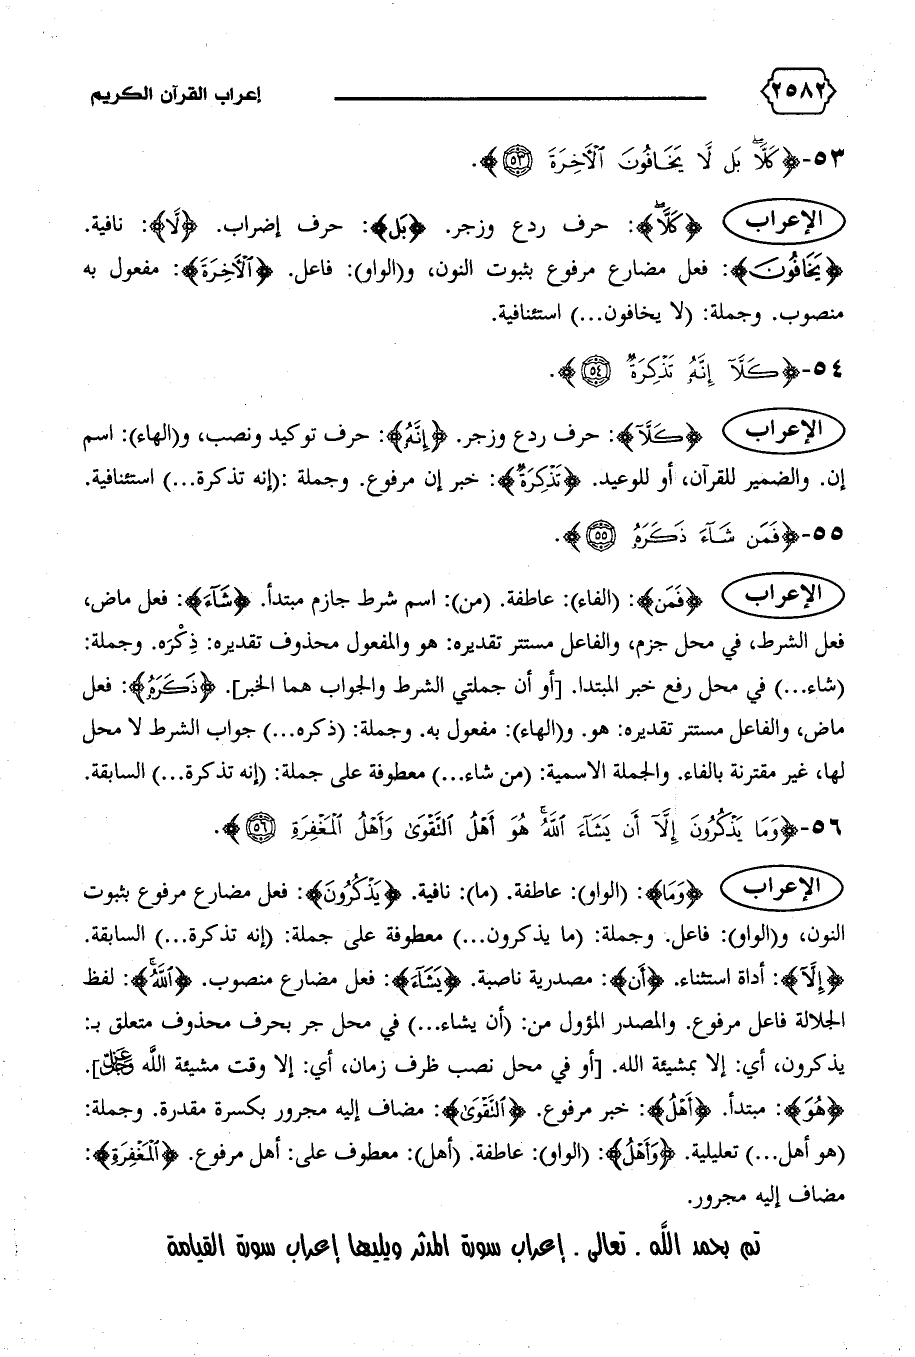 ٢٥٨٢ إعراب القرآن الكريم
٥٣-﴿كَلَّا ۖ بَل لَّا يَخَافُونَ ٱلْآخِرَةَ ٥٣﴾.
الإعراب ﴿كَلَّا ۖ﴾: حرف ردع وزجر. ﴿بَل﴾: حرف إضراب. ﴿لَّا﴾: نافية.
﴿يَخَافُونَ﴾: فعل مضارع مرفوع بثبوت النون، و(الواو): فاعل. ﴿ٱلْآخِرَةَ﴾: مفعول به
منصوب. وجملة: (لا يخافون...) استئنافية.
٥٤-﴿كَلَّآ إِنَّهُۥ تَذْكِرَةٌ ٥٤﴾.
الإعراب ﴿كَلَّآ﴾: حرف ردع وزجر. ﴿إِنَّهُۥ﴾: حرف توكيد ونصب، و(الهاء): اسم
إن. والضمير للقرآن، أو للوعيد. ﴿تَذْكِرَةٌ﴾: خبر إن مرفوع. وجملة :(إنه تذكرة...) استئنافية.
٥٥-﴿فَمَن شَآءَ ذَكَرَهُۥ ٥٥﴾.
الإعراب ﴿فَمَن﴾: (الفاء): عاطفة. (من): اسم شرط جازم مبتدأ. ﴿شَآءَ﴾: فعل ماض،
فعل الشرط، في محل جزم، والفاعل مستتر تقديره: هو والمفعول محذوف تقديره: ذِكْرَه. وجملة:
(شاء...) في محل رفع خبر المبتدا. [أو أن جملتي الشرط والجواب هما الخبر]. ﴿ذَكَرَهُۥ﴾: فعل
ماض، والفاعل مستتر تقديره: هو. و(الهاء): مفعول به. وجملة: (ذكره...) جواب الشرط لا محل
لها، غير مقترنة بالفاء. والجملة الاسمية: (من شاء...) معطوفة على جملة: (إنه تذكرة...) السابقة.
٥٦-﴿وَمَا يَذْكُرُونَ إِلَّآ أَن يَشَآءَ ٱللَّهُ ۚ هُوَ أَهْلُ ٱلتَّقْوَىٰ وَأَهْلُ ٱلْمَغْفِرَةِ ٥٦﴾.
الإعراب ﴿وَمَا﴾: (الواو): عاطفة. (ما): نافية. ﴿يَذْكُرُونَ﴾: فعل مضارع مرفوع بثبوت
النون، و(الواو): فاعل. وجملة: (ما يذكرون...) معطوفة على جملة: (إنه تذكرة...) السابقة.
﴿إِلَّآ﴾: أداة استثناء. ﴿أَن﴾: مصدرية ناصبة. ﴿يَشَآءَ﴾: فعل مضارع منصوب. ﴿ٱللَّهُ ۚ﴾: لفظ
الجلالة فاعل مرفوع. والمصدر المؤول من: (أن يشاء...) في محل جر بحرف محذوف متعلق بـ:
يذكرون، أي: إلا بمشيئة الله. [أو في محل نصب ظرف زمان، أي: إلا وقت مشيئة اللَّه عز وجل].
﴿هُوَ﴾: مبتدأ. ﴿أَهْلُ﴾: خبر مرفوع. ﴿ٱلتَّقْوَىٰ﴾: مضاف إليه مجرور بكسرة مقدرة. وجملة:
(هو أهل...) تعليلية. ﴿وَأَهْلُ﴾: (الواو): عاطفة. (أهل): معطوف على: أهل مرفوع. ﴿ٱلْمَغْفِرَةِ﴾:
مضاف إليه مجرور.
تم بحمد اللَّه . تعالى . إعراب سورة المدثر ويليها إعراب سورة القيامة